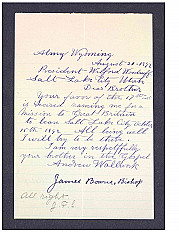 Almy Wyoming
August 20-1892
President Wilford Woodruff
Salt Lake City Utah
Dear Brother
Your favor of the 17th inst
is received naming me for a
mission to Great Britain
to leave Salt Lake City October
15th 1892 All being well
I will try to be there
I am very respectfully
your brother in the Gospel
Andrew
James Bowns, Bishop
All right
J. F. S.